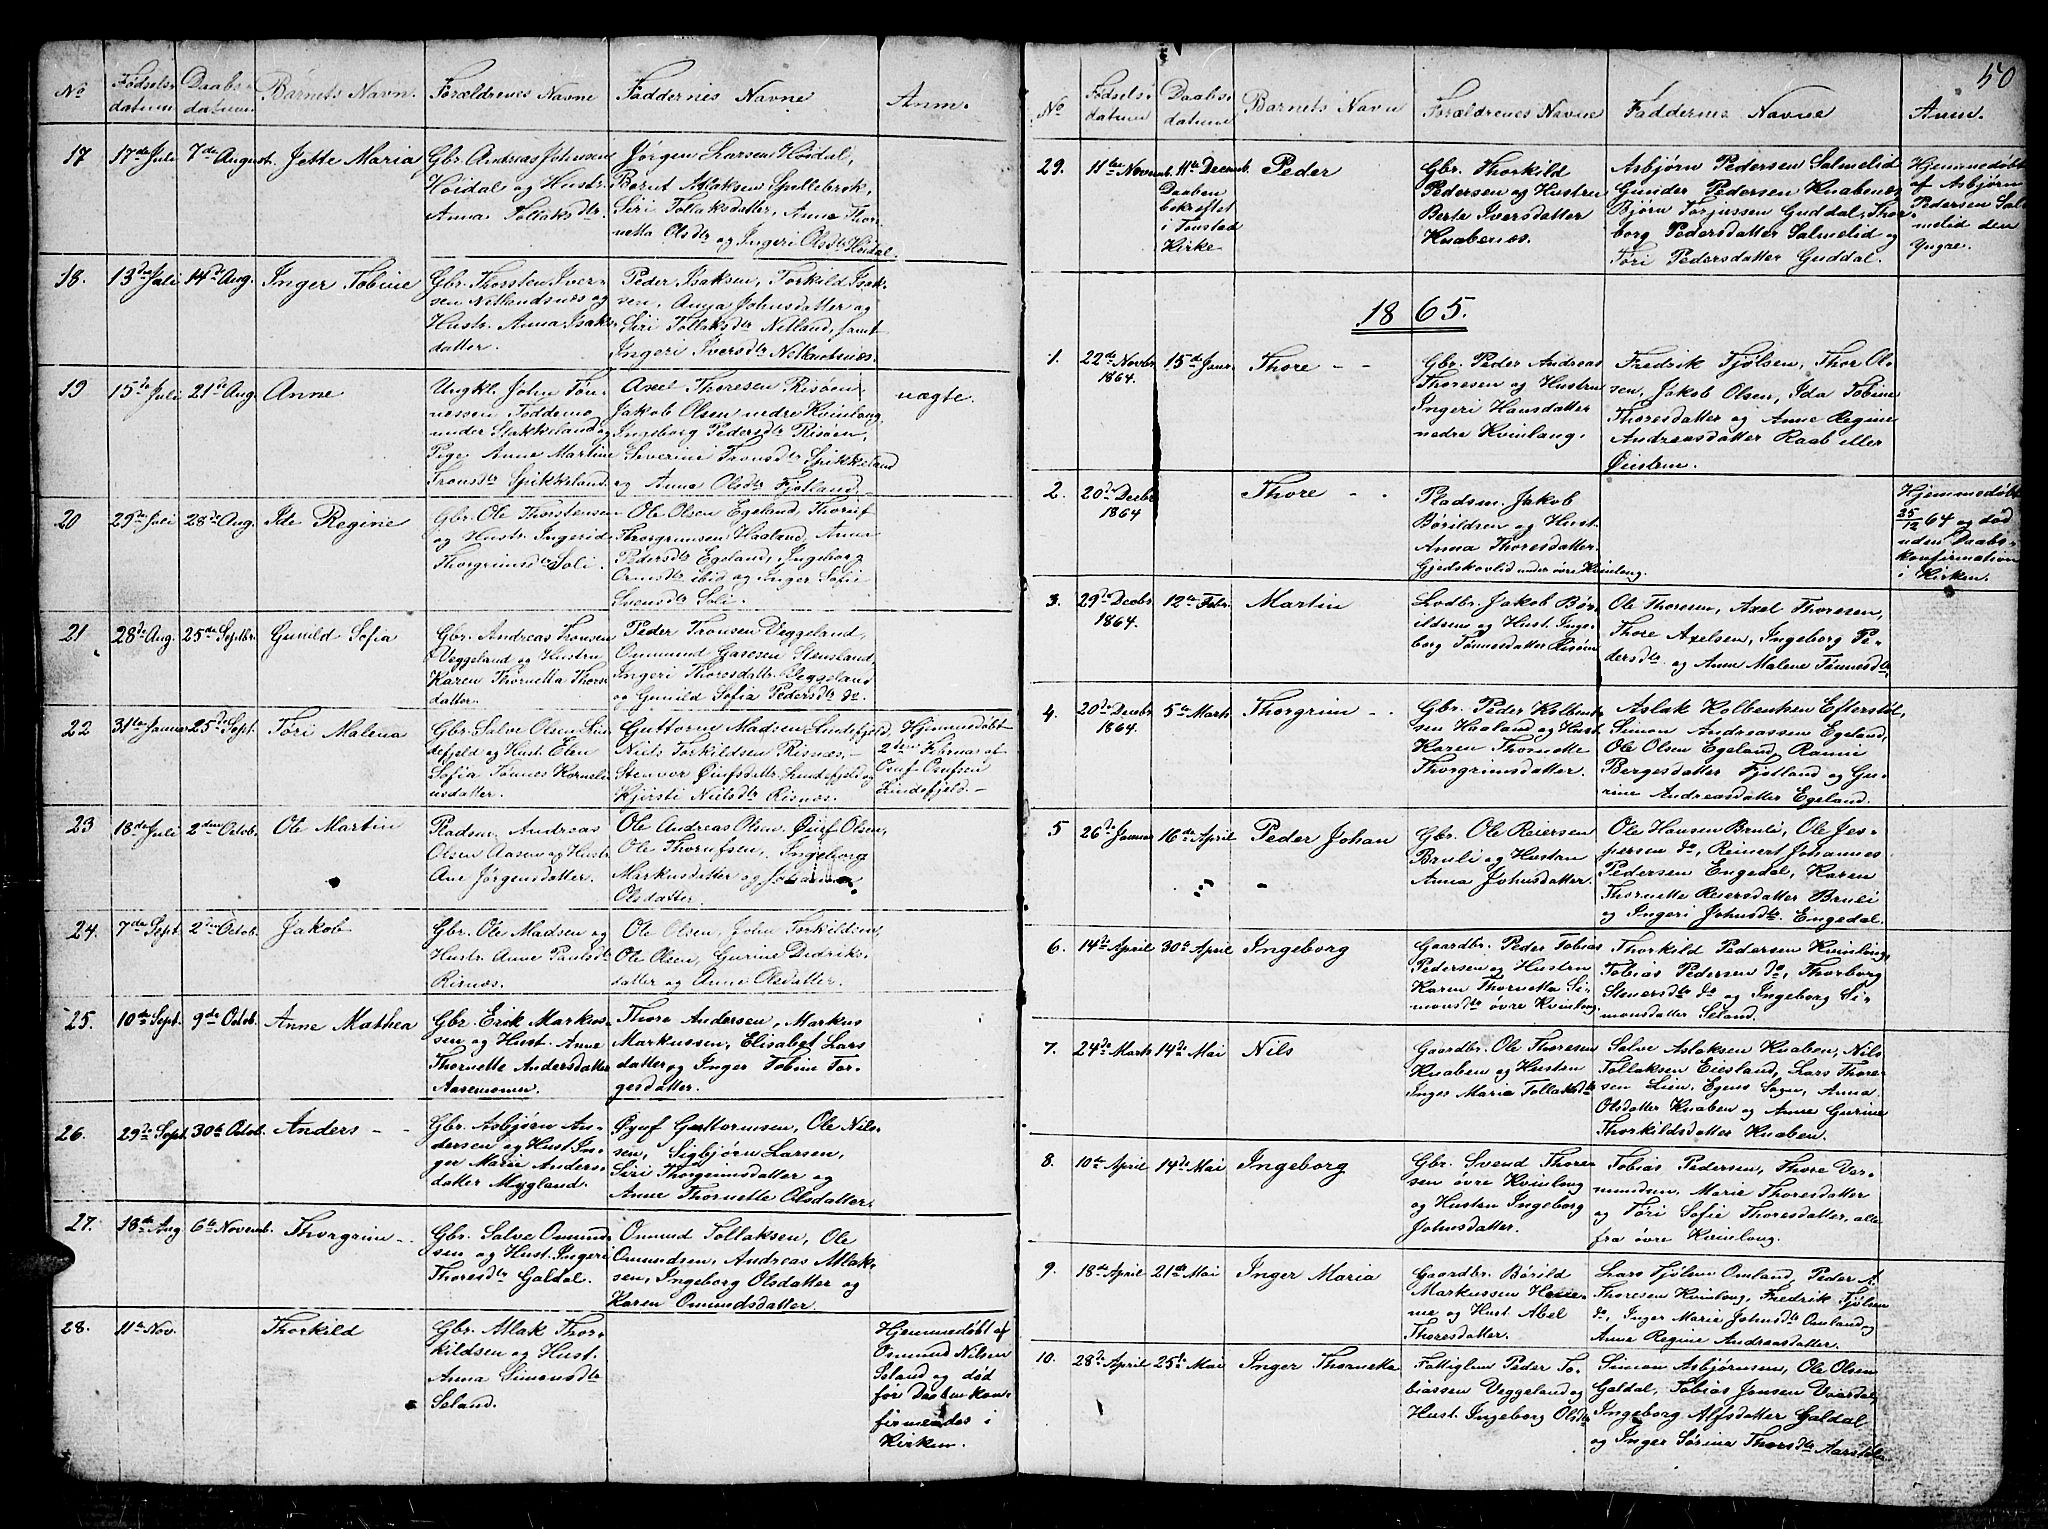 No Fødsels-datum Daabs-datum Barnets Navn. Forældrenes Navne Faddernes Navne Anm.
17 17de Juli 7de August. Jotte Maria
Gbr. Andreas Johnsen
Høidal og Hustr.
Anna Tollaksdtr.
Jørgen Larsen Høidal,
Bernt Aslaksen Spillebrok,
Siri Tollaksdatter, Anne Thor-
netta Olsdtr og Ingeri Olsdtr Høidal.
18. 13de Juli 14de Aug. Inger Tobine
Gbr. Thorsten Iver-
sen Netlandsnæs og
Hustr. Anna Isaks-
datter.
Peder Isaksen, Torkild Isak-
sen, Anna Johnsdatter og
Siri Tollaksdtr Netland, samt
Ingeri Iversdtr Netlandsnæs.
19 15de Juli 21de Aug. Anne
Ungkl. John Tøn-
nessen Foddemo
under Stakkeland og
Pige Anne Martine
Tronsdtr Spikkeland.
Axel Thoresen Risøen,
Jakob Olsen nedre Kvinlaug
Ingeborg Pedersdtr Risøen,
Severine Tronsdtr Spikkeland
og Anna Olsdtr Fjotland.
uægte.
20 29de Juli 28de Aug. Ide Regine
Gbr. Ole Thorstensen
og Hustr. Ingerid
Thorgrimsdtr Soli.
Ole Olsen Egeland, Thoruf
Throgrimsen Haaland, Anna
Pedersdtr Egeland, Ingeborg
Ormsdtr ibid og Inger Sofie
Svensdtr Soli.
21 28de Aug. 25de Septbr. Gunild Sofia
Gbr. Andreas Thronsen
Veggeland og Hustru
Karen Thornetta Thors-
datter.
Peder Tronsen Veggeland,
Ommund Garesen Stensland,
Ingeri Thoresdattr. Veggeland
og Gunild Sofia Pedersdtr do.
22 31te Januar 25de Sept. Tøri Malena
Gbr. Salve Olsen Lin-
defjeld og Hust. Elen
Sofia Tønnes Korneli-
usdatter.
Guttorm Madsen Lindefjeld,
Niels Torkildsen Risnæs,
Stenvor Øiufsdattr Lindefjeld og
Kjersti Nielsdtr Risnæs.
Hjemmedøbt
af
Lindefjeld.
23 18de Juli 2den Octob. Ole Martin
Pladsm. Andreas
Olsen Aasen og Hustr.
Ane Jørgensdatter.
Ole Andreas Olsen, Øiuf Olsen,
Ole Thorufsen, Ingeborg
Markusdatter og Johanna
Olsdatter.
24. 7de Sept. 2den Octob. Jakob
Gbr. Ole Madsen og
Hustr. Anne Paulsdtr
Risnæs.
Ole Olsen, John Torkildsen,
Ole Olsen, Gurine Didriks-
datter og Anne Olsdatter.
25. 10de Sept. 9de Octob. Anne Mathea
Gbr. Erik Markus-
sen og Hust. Anne
Thornette Andersdatter
Aaremoen.
Thore Andersen, Markus
Markussen, Elisabet Lars-
datter og Inger Tobine Tor-
gesdatter.
26. 29de Sept. 30te Octob. Anders - -
Gbr. Asbjørn An-
dersen og Hust. In-
ger Marie Anders-
datter Mygland.
Øyuf Guttormsen, Ole Nils-
sen, Sigbjørn Larsen,
Siri Thorgrimsdatter og
Anne Thornette Olsdatter.
27. 18de Aug. 6te Novemb. Thorgrim -
Gbr. Salve Omund-
sen og Hust. Ingeri
Thoresdtr Galdal.
Omund Tollaksen, Ole
Omundsen, Andreas Atlak-
sen, Ingeborg Olsdatter og
Karen Omundsdatter.
28. 11te Nov. Thorkild
Gbr. Atlak Thor-
kildsen og Hust.
Anna Simonsdtr
Seland.
Hjemmedøbt af
Osmund Nilsen
Seland og død
før Daaben kon-
firmerdes i
Kirken.
50
No Fødsels-datum Daabs-datum Barnets Navn Forældrenes Navne Faddernes Navne Anm.
29. 11te Novemb. 11te Decemb. Peder
Daaben
bekræftet
i Tonstad
Kirke
Gbr. Thorkild
Pedersen og Hustru
Berte Iversdatter
Knabenes.
Asbjørn Pedersen Salmelid
Gunder Pedersen Knabenes
Bjørn Torjussen Guddal, Thor-
borg Pedersdatter Salmelid og
Tøri Pedersdatter Guddal.
Hjemmedøbt
af Asbjørn
Pedersen Sal-
melid den
Yngre.
1865.
1. 22de Novbr. 1864. 15de Janr. Thore - -
Gbr. Peder Andreas
Thoresen og Hustru
Ingeri Hansdatter
nedre Kvinlaug.
Fredrik Tjølsen, Thor Ol-
sen, Jakob Olsen, Ida Tobine
Thoresdatter og Anne Regine
Andreasdatter Raab eller
Øiestøm.
2. 20de Decbr 1864 Thore - -
Pladsm. Jakob
Børildsen og Hust.
Anna Thoresdatter.
Gjedskovlid under øvre Kvinlaug.
Hjemmedøbt
25/12 64 og død
uden Daabs-
konfirmation
i Kirken.
3. 29de Decbr. 1864. 12te Febr. Martin
Lodbr. Jakob Bør-
ildsen og Hust. Inge-
borg Tønnesdatter Risøen
Ole Thoresen, Axel Thoresen,
Thore Axelsen, Ingeborg Pe-
dersdtr og Anne Malene Tønnesdtr
4. 20de Decbr. 1864. 5te Marts Thorgrim - -
Gbr. Peder Kolbent-
sen Haaland og Hust.
Karen Thornette
Thorgrimsdatter.
Aslak Kolbentsen Efterstøl,
Simon Andreassen Egeland,
Ole Olsen Egeland, Rannei
Bergesdatter Fjotland og Gu-
rine Andreasdatter Egeland.
5 26de Januar 16de April Peder Johan
Gbr. Ole Reiersen
Bruli og Hustru
Anna Johnsdatter.
Ole Hansen Bruli, Ole Jes-
persen do, Reinert Johannes
Pedersen Engedal, Karen
Thornette Reiersdatter Bruli
og Ingeri Johnsdtr. Engedal.
6. 14de April 30te April Ingeborg
Gaardbr. Peder Tobias
Pedersen og Hustru
Karen Thornetta Si-
monsdtr øvre Kvinlaug
Thorkild Pedersen Kvinlaug,
Tobias Pedersen do, Thorborg
Stenersdtr do og Ingeborg Si-
monsdatter Seland.
7. 24de Marts 14de Mai Nils
Gaardbr. Ole Thoresen
Knaben og Hustru
Inger Maria Tollaksdtr
Salve Aslaksen Knaben, Nils
Tollaksen Eiesland, Lars Thore-
sen Lien, Egens Sogn, Anna
Olsdatter Knaben og Anne Gurine
Thorkildsdatter Knaben.
8. 10de April 14de Mai Ingeborg
Gbr. Svend Thore-
sen øvre Kvinlog
og Hustru Ingeborg
Johnsdatter.
Tobias Pedersen, Thore Ver-
mundsen, Marie Thoresdatter
og Tøri Sofie Thoresdatter, alle
fra øvre Kvinlong.
9. 18de April 21de Mai Inger Maria
Gaardbr. Børild
Markussen Heie-
me og Hust. Abel
Thoresdatter.
Lars Tjølsen Omland, Peder A.
Thoresen Kvinlog, Fredrik Tjølsen
do, Inger Marie Johnsdtr Omland og
Anne Regine Andreasdatter.
10. 28de April 25de Mai Inger Thornetta
Fattiglem Peder To-
biassen Veggeland og
Hust. Ingeborg Olsdtr
Simon Asbjørnsen, Ole Olsen
Galdal, Tobias Jonsen Vaardal,
Ingeborg Alfsdatter Galdal
og Inger Sørine Thorsdtr Aarstøl